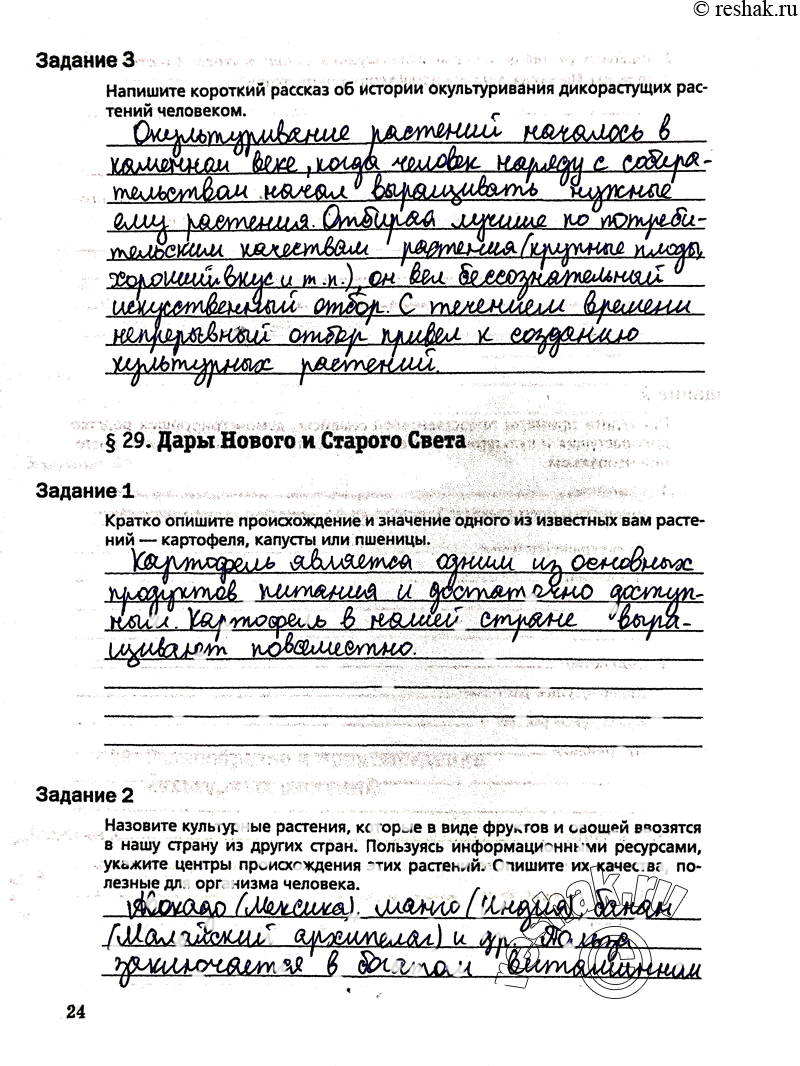 © reshak.ru
Задание 3
Напишите короткий рассказ об истории окультуривания дикорастущих рас-
тений человеком.
Окультуривание растений началось в
каменном веке, когда человек наряду с собира-
тельством начал выращивать нужные
ему растения. Отбирая лучшие по потреби-
тельским качествам растения (крупные плоды,
хороший вкус и т.п.), он вел бессознательный
искусственный отбор. С течением времени
непрерывный отбор привел к созданию
культурных растений.
§ 29. Дары Нового и Старого Света
Задание 1
Кратко опишите происхождение и значение одного из известных вам расте-
ний — картофеля, капусты или пшеницы.
Картофель является одним из основных
продуктов питания и достаточно доступ-
ный. Картофель в нашей стране выра-
щивают повсеместно.
Задание 2
Назовите культурные растения, которые в виде фруктов и овощей ввозятся
в нашу страну из других стран. Пользуясь информационными ресурсами,
укажите центры происхождения этих растений. Опишите их качества, по-
лезные для организма человека.
Авокадо (Мексика), манго (Индия), банан
(Малайский архипелаг) и др. Польза
заключается в богатом витаминном
reshak.ru
©
24